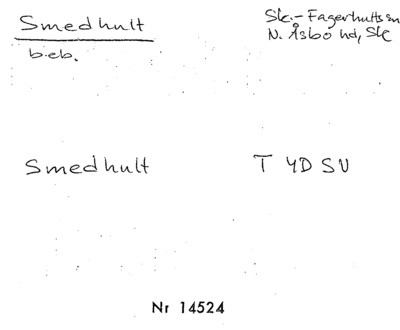 Smedhult
Sk.-Fagerhults sn
b.eb.
N. Åsbo hd, Sk
Smedhult T 4D SV
Nr 14524